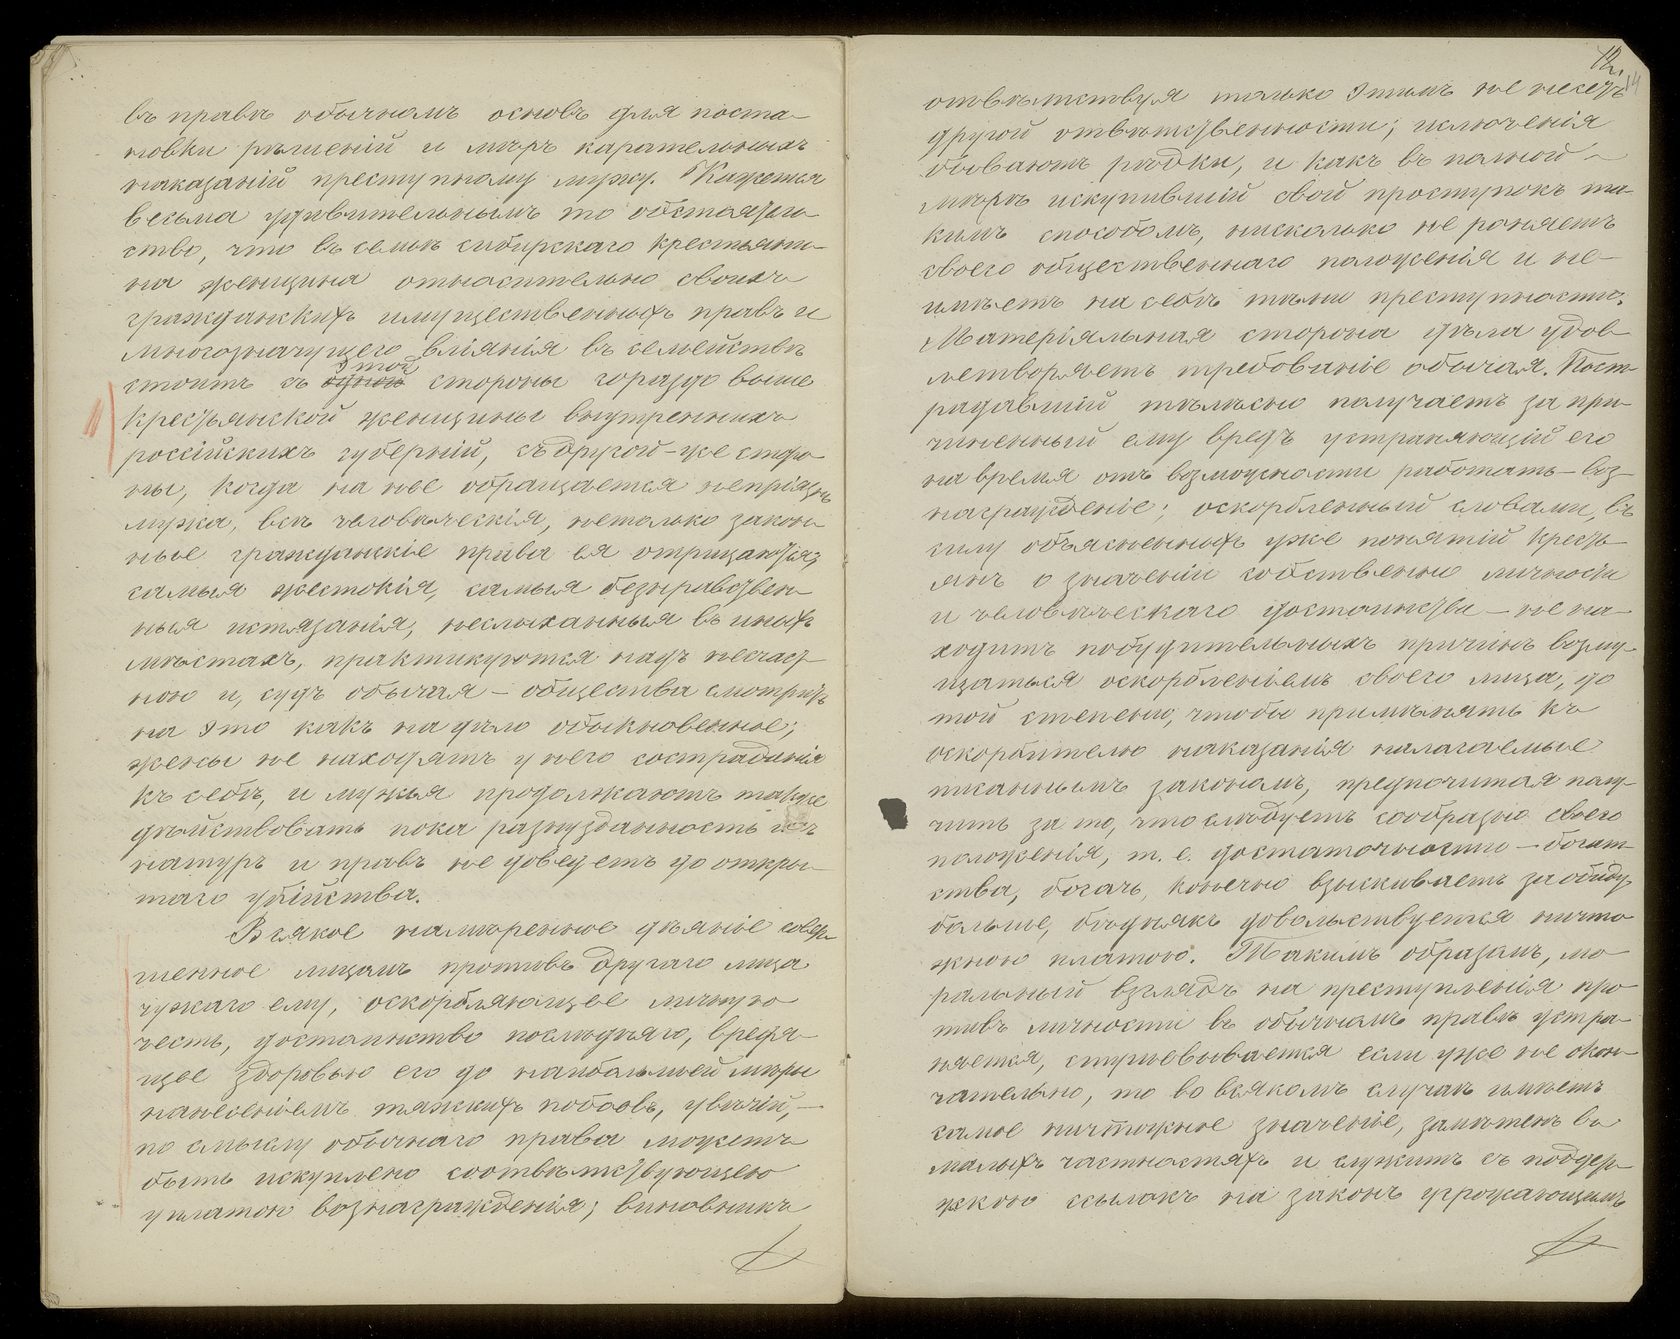 въ правѣ обычномъ основъ для поста-
новки рѣшеній и мѣръ карательныхъ
наказаній преступному мужу. Кажется
весьма удивительнымъ то обстоятель-
ство, что въ семьѣ сибирскаго крестьяни-
на женщина относительно своихъ
гражданскихъ имущественныхъ правъ и
многозначущего вліянія въ семействѣ
стоитъ съ этой стороны гораздо выше
крестьянской женщины внутреннихъ
россійскихъ губерній, съ другой-же сторо-
ны, когда на нее обращается непріязнь
мужа, всѣ человѣческія, нетолько закон-
ные гражданскіе права ея отрицаются;
самыя жестокія, самыя безнравствен-
ныя истязанія, неслыханныя въ иныхъ
мѣстахъ, практикуются надъ несчаст-
ною и, судъ обычая - общества смотритъ
на это какъ на дѣло обыкновенное;
жены не находятъ у него состраданія
къ себѣ, и мужья продолжаютъ также
дѣйствовать пока разнузданность ихъ
натуръ и нравъ не доведетъ до откры-
таго убійства.
Всякое намѣренное дѣяніе совер-
шенное лицомъ противъ другаго лица
чужаго ему, оскорбляющее личную
честь, достоинство послѣдняго, вредя-
щее здоровью его до наибольшей мѣры
нанесеніемъ тяжкихъ побоевъ, увѣчій, -
по смыслу обычнаго права можетъ
быть искуплено соотвѣтствующею
уплатою вознагражденія; виновникъ
12.
14
отвѣтствуя только этимъ не несетъ
другой отвѣтственности; исключенія
бываютъ рѣдки, и какъ въ полной
мѣрѣ искупившій свой проступокъ та-
кимъ способомъ, нисколько не роняетъ
своего общественнаго положенія и не-
имѣетъ на себѣ тѣни преступности.
Матеріяльная сторона дѣла удов-
летворяетъ требованіе обычая. Пост-
радавшій тѣлесно получаетъ за при-
чиненный ему вредъ устраняющій его
на время отъ возможности работать - воз-
награжденіе; оскорбленный словами, въ
силу объясненныхъ уже понятій кресть-
янъ о значеніи собственно личности
и человѣческаго достоинства - не на-
ходитъ побудительныхъ причинъ возму-
щаться оскорбленіемъ своего лица, до
той степени, чтобы примѣнять къ
оскорбителю наказанія налагаемые
писаннымъ закономъ, предпочитая полу-
чить за то, что слѣдуетъ сообразно своего
положенія, т. е. достаточности - богат-
ства, богачъ, конечно взыскиваетъ за обиду
больше, бѣднякъ довольствуется ничто-
жною платою. Такимъ образомъ, мо-
ральный взглядъ на преступленія про-
тивъ личности въ обычномъ правѣ устра-
няется, стушевывается если уже не окон-
чательно, то во всякомъ случаѣ имѣетъ
самое ничтожное значеніе, замѣтенъ въ
малыхъ частностяхъ и служитъ съ поддер-
жкою ссылокъ на законъ угрожающимъ